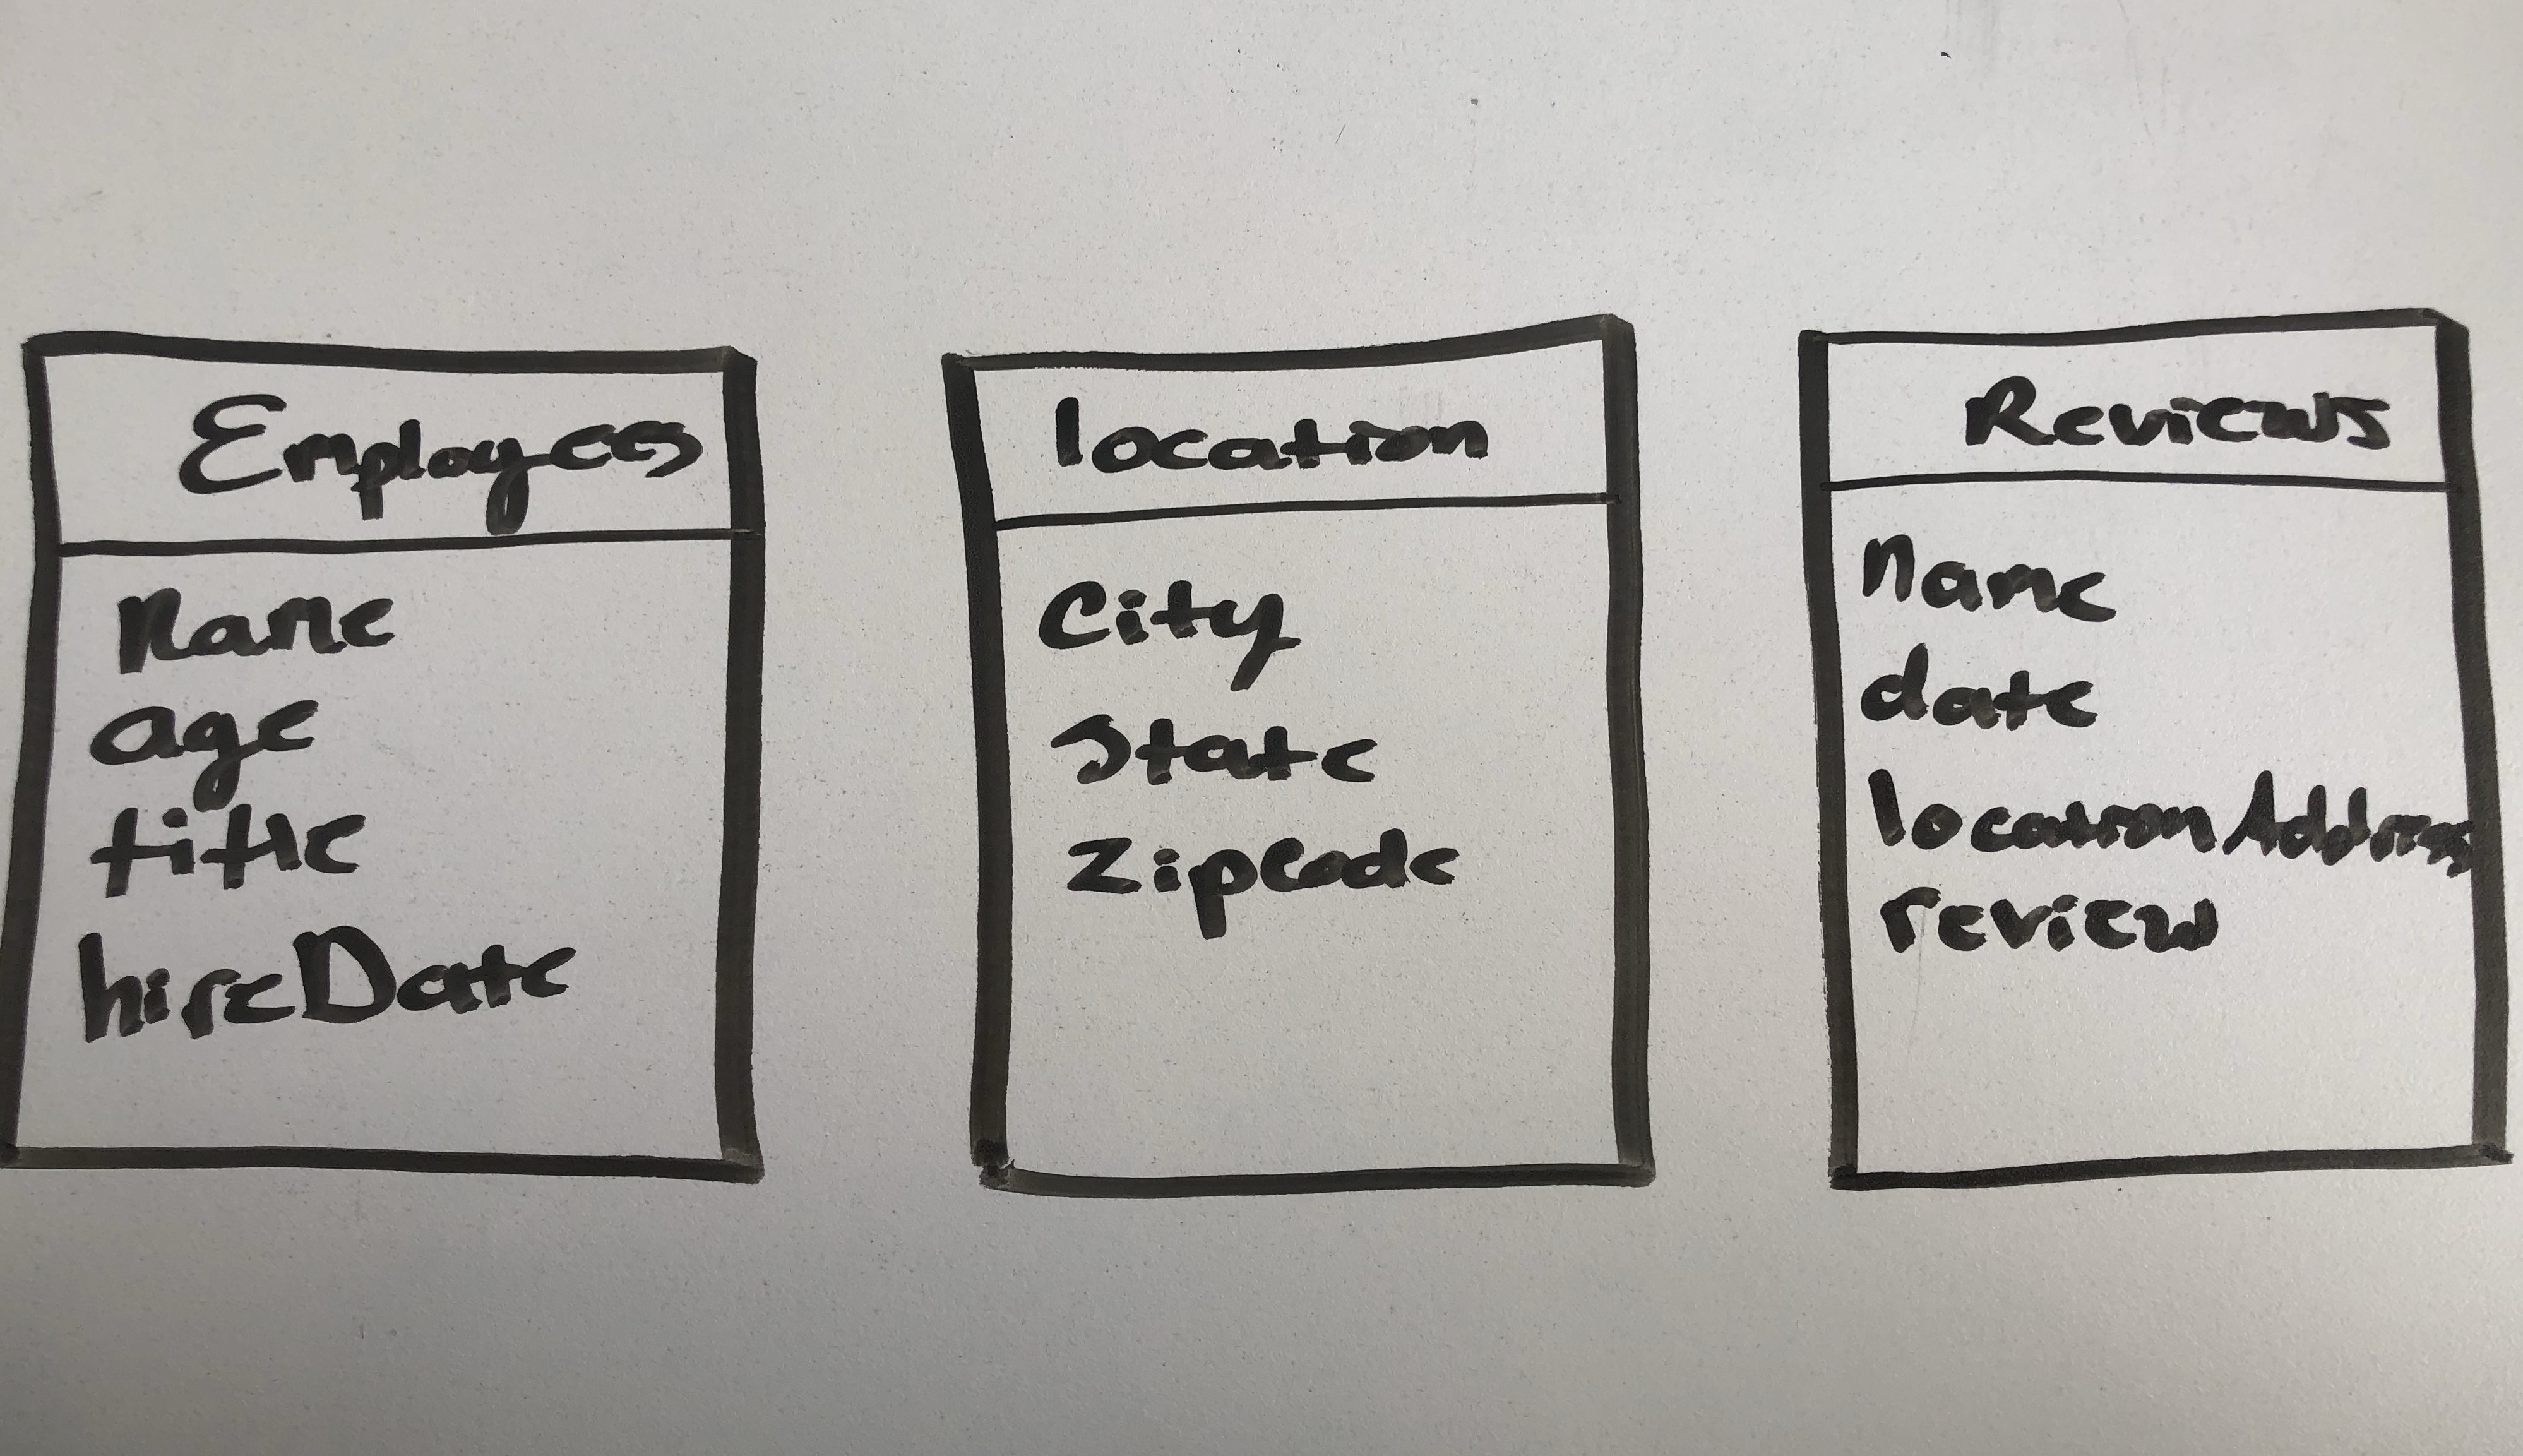 Employees
Name
age
title
hireDate
location
City
State
ZipCode
Reviews
Name
date
locationAddress
review